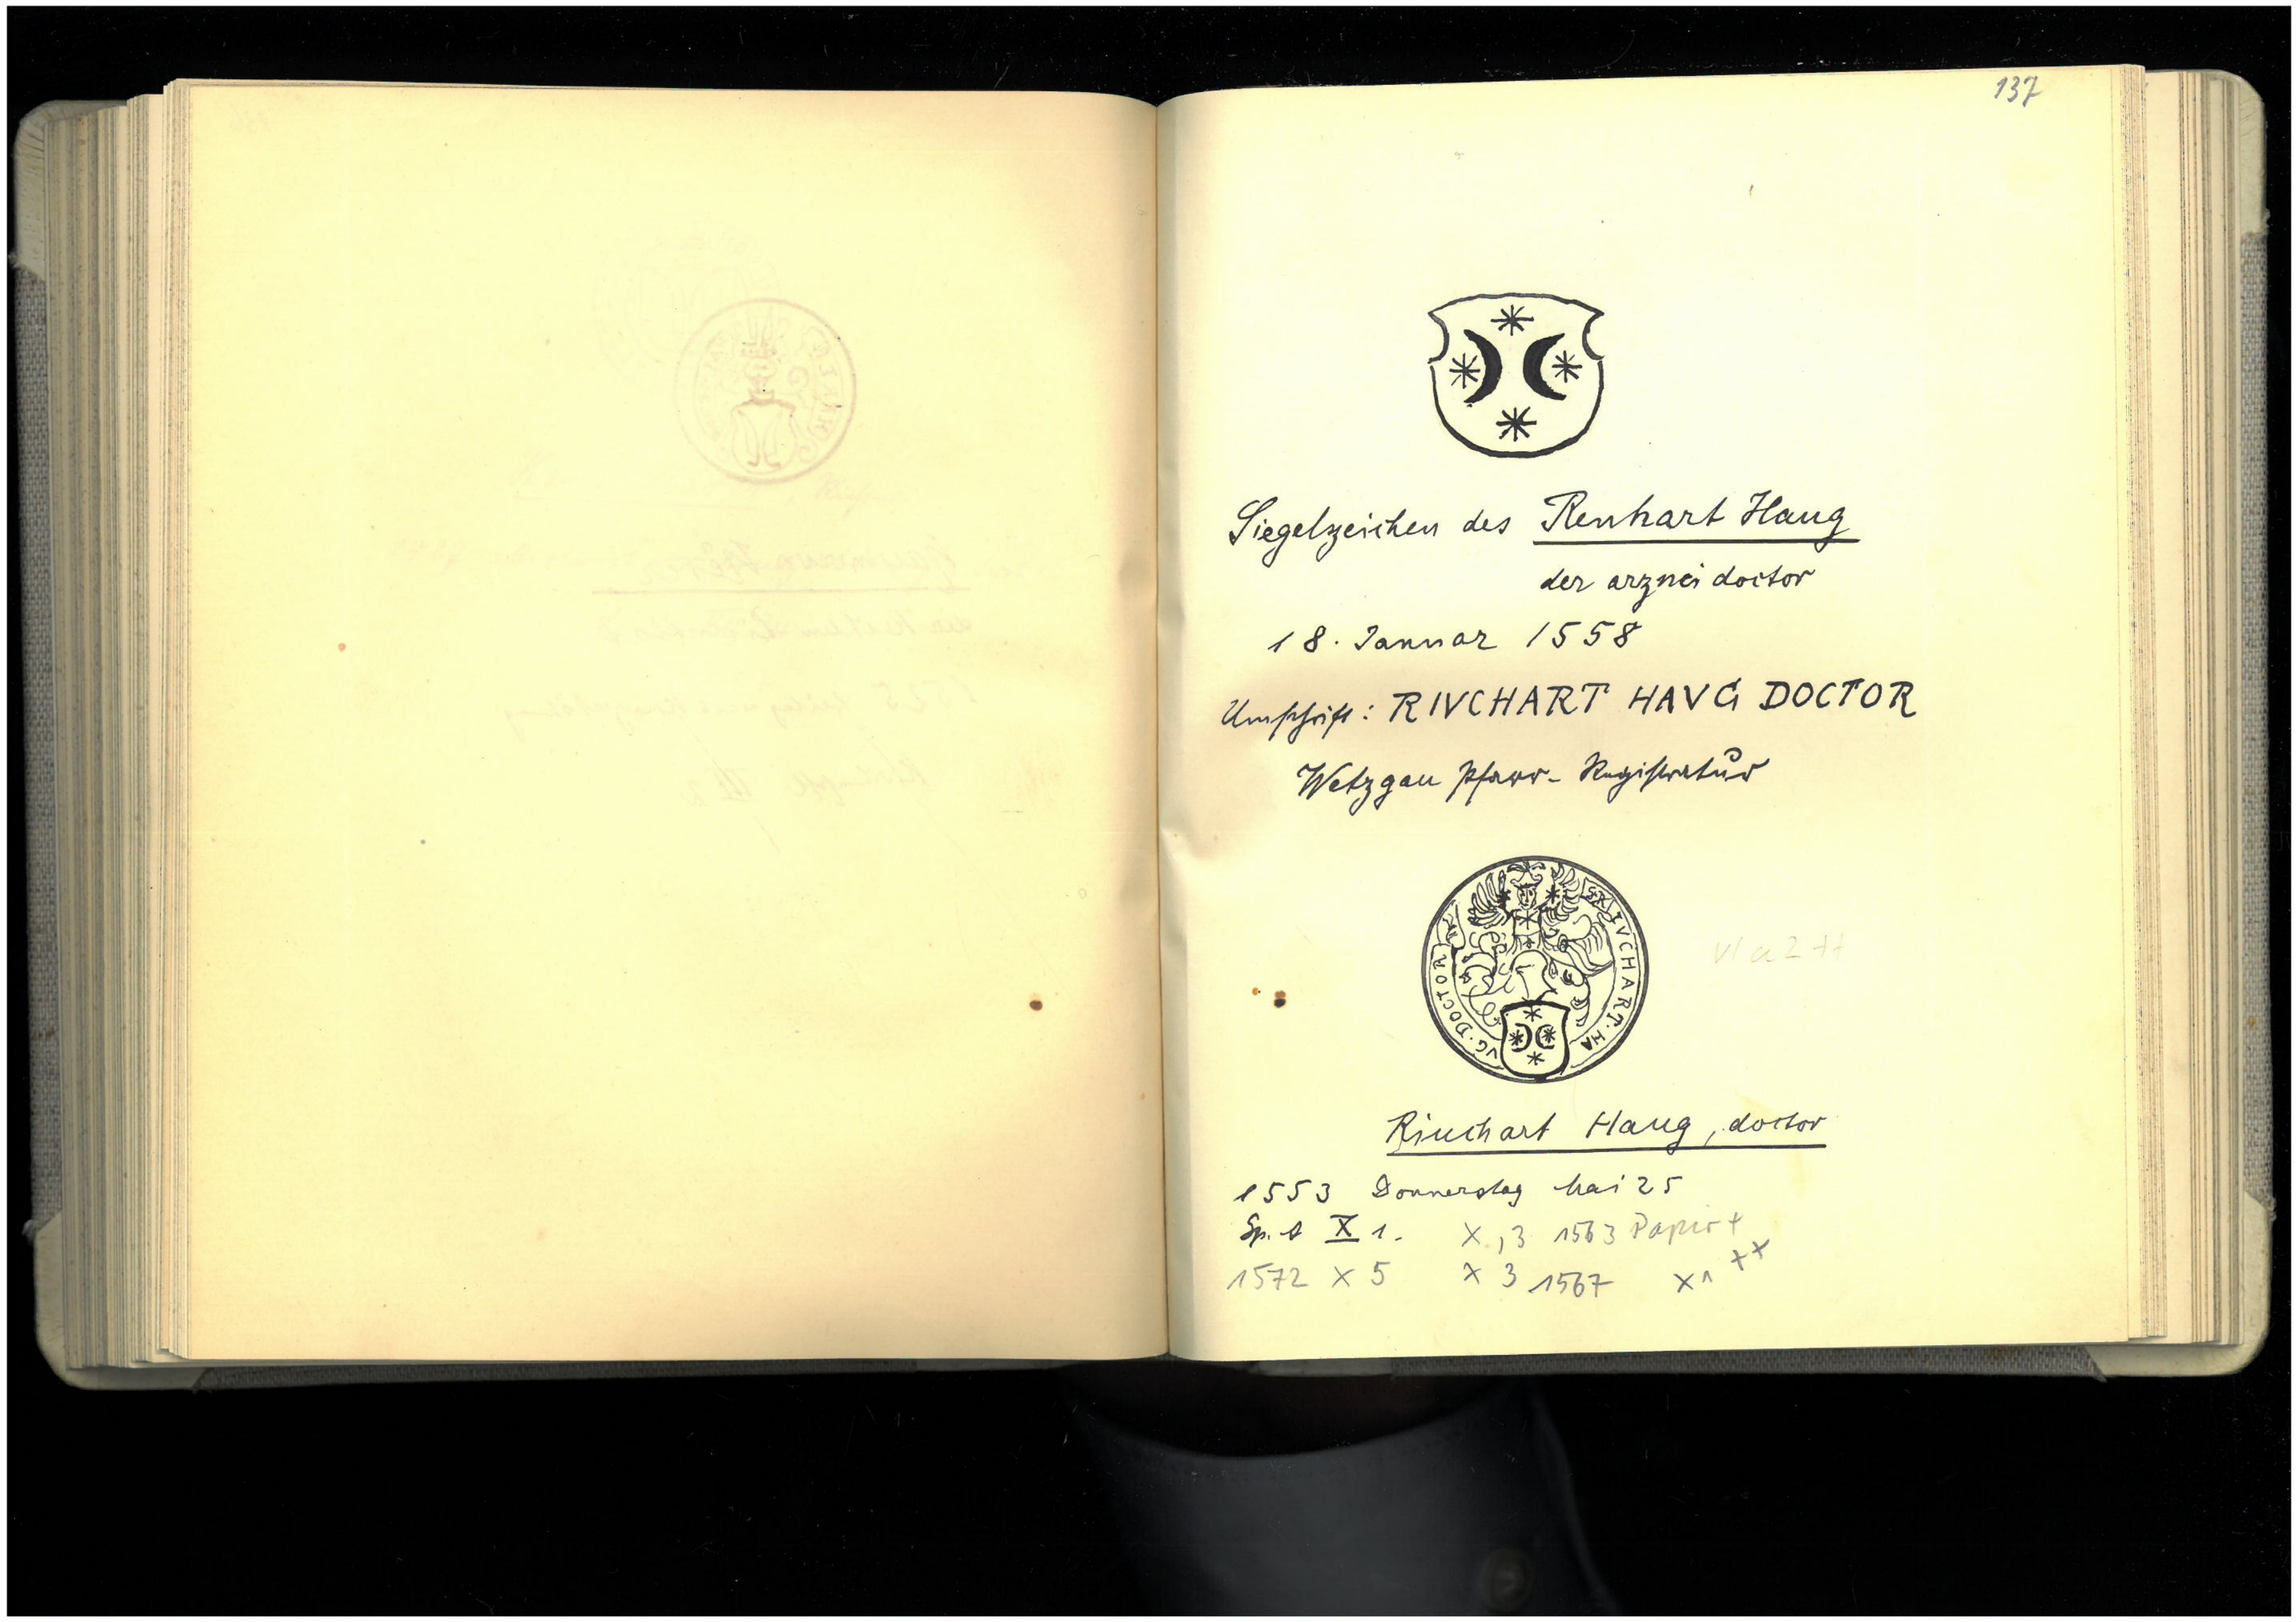 137
Siegelzeichen des Renhart Haug
der arznei doctor
18. Januar 1558
Umschrift: RIVCHART HAVG DOCTOR
Wetzgau Pfarr-Registratur
S. RIVCHART · HA
VG · DOCTOR
Riuchart Haug, doctor
1553 Donnerstag Mai 25
Sp. A X 1. X, 3 1563 Papier +
1572 X 5 X 3 1567 X 1 ++